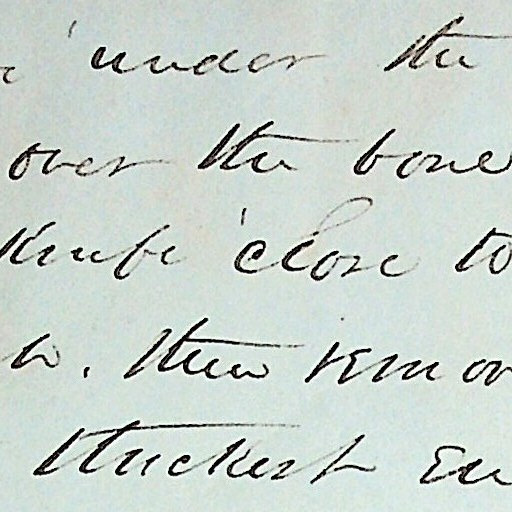 under the
over the bone
Knife close to
then remov
thickest en